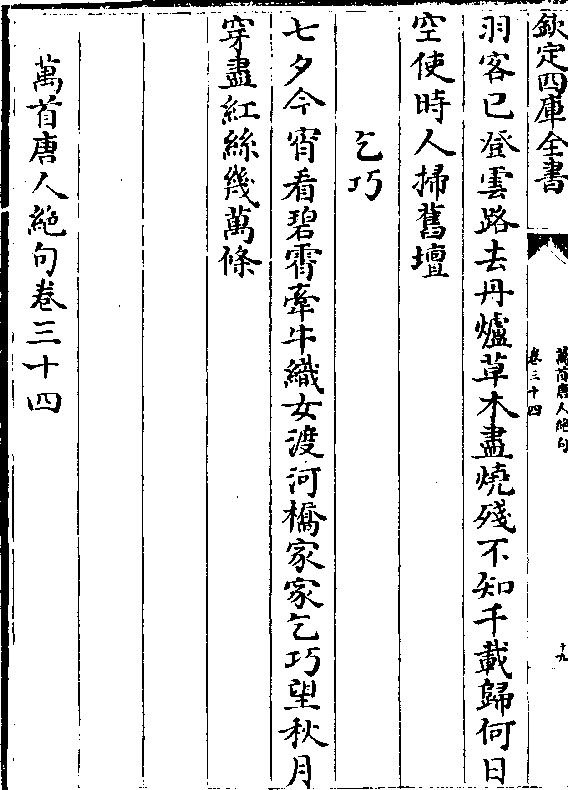 欽定四庫全書
萬首唐人絶句
卷三十四
十九
羽客已登雲路去丹爐草木盡燒殘不知千載歸何日
空使時人掃舊壇
乞巧
七夕今宵看碧霄牽牛織女渡河橋家家乞巧望秋月
穿盡紅絲幾萬條
萬首唐人絶句卷三十四